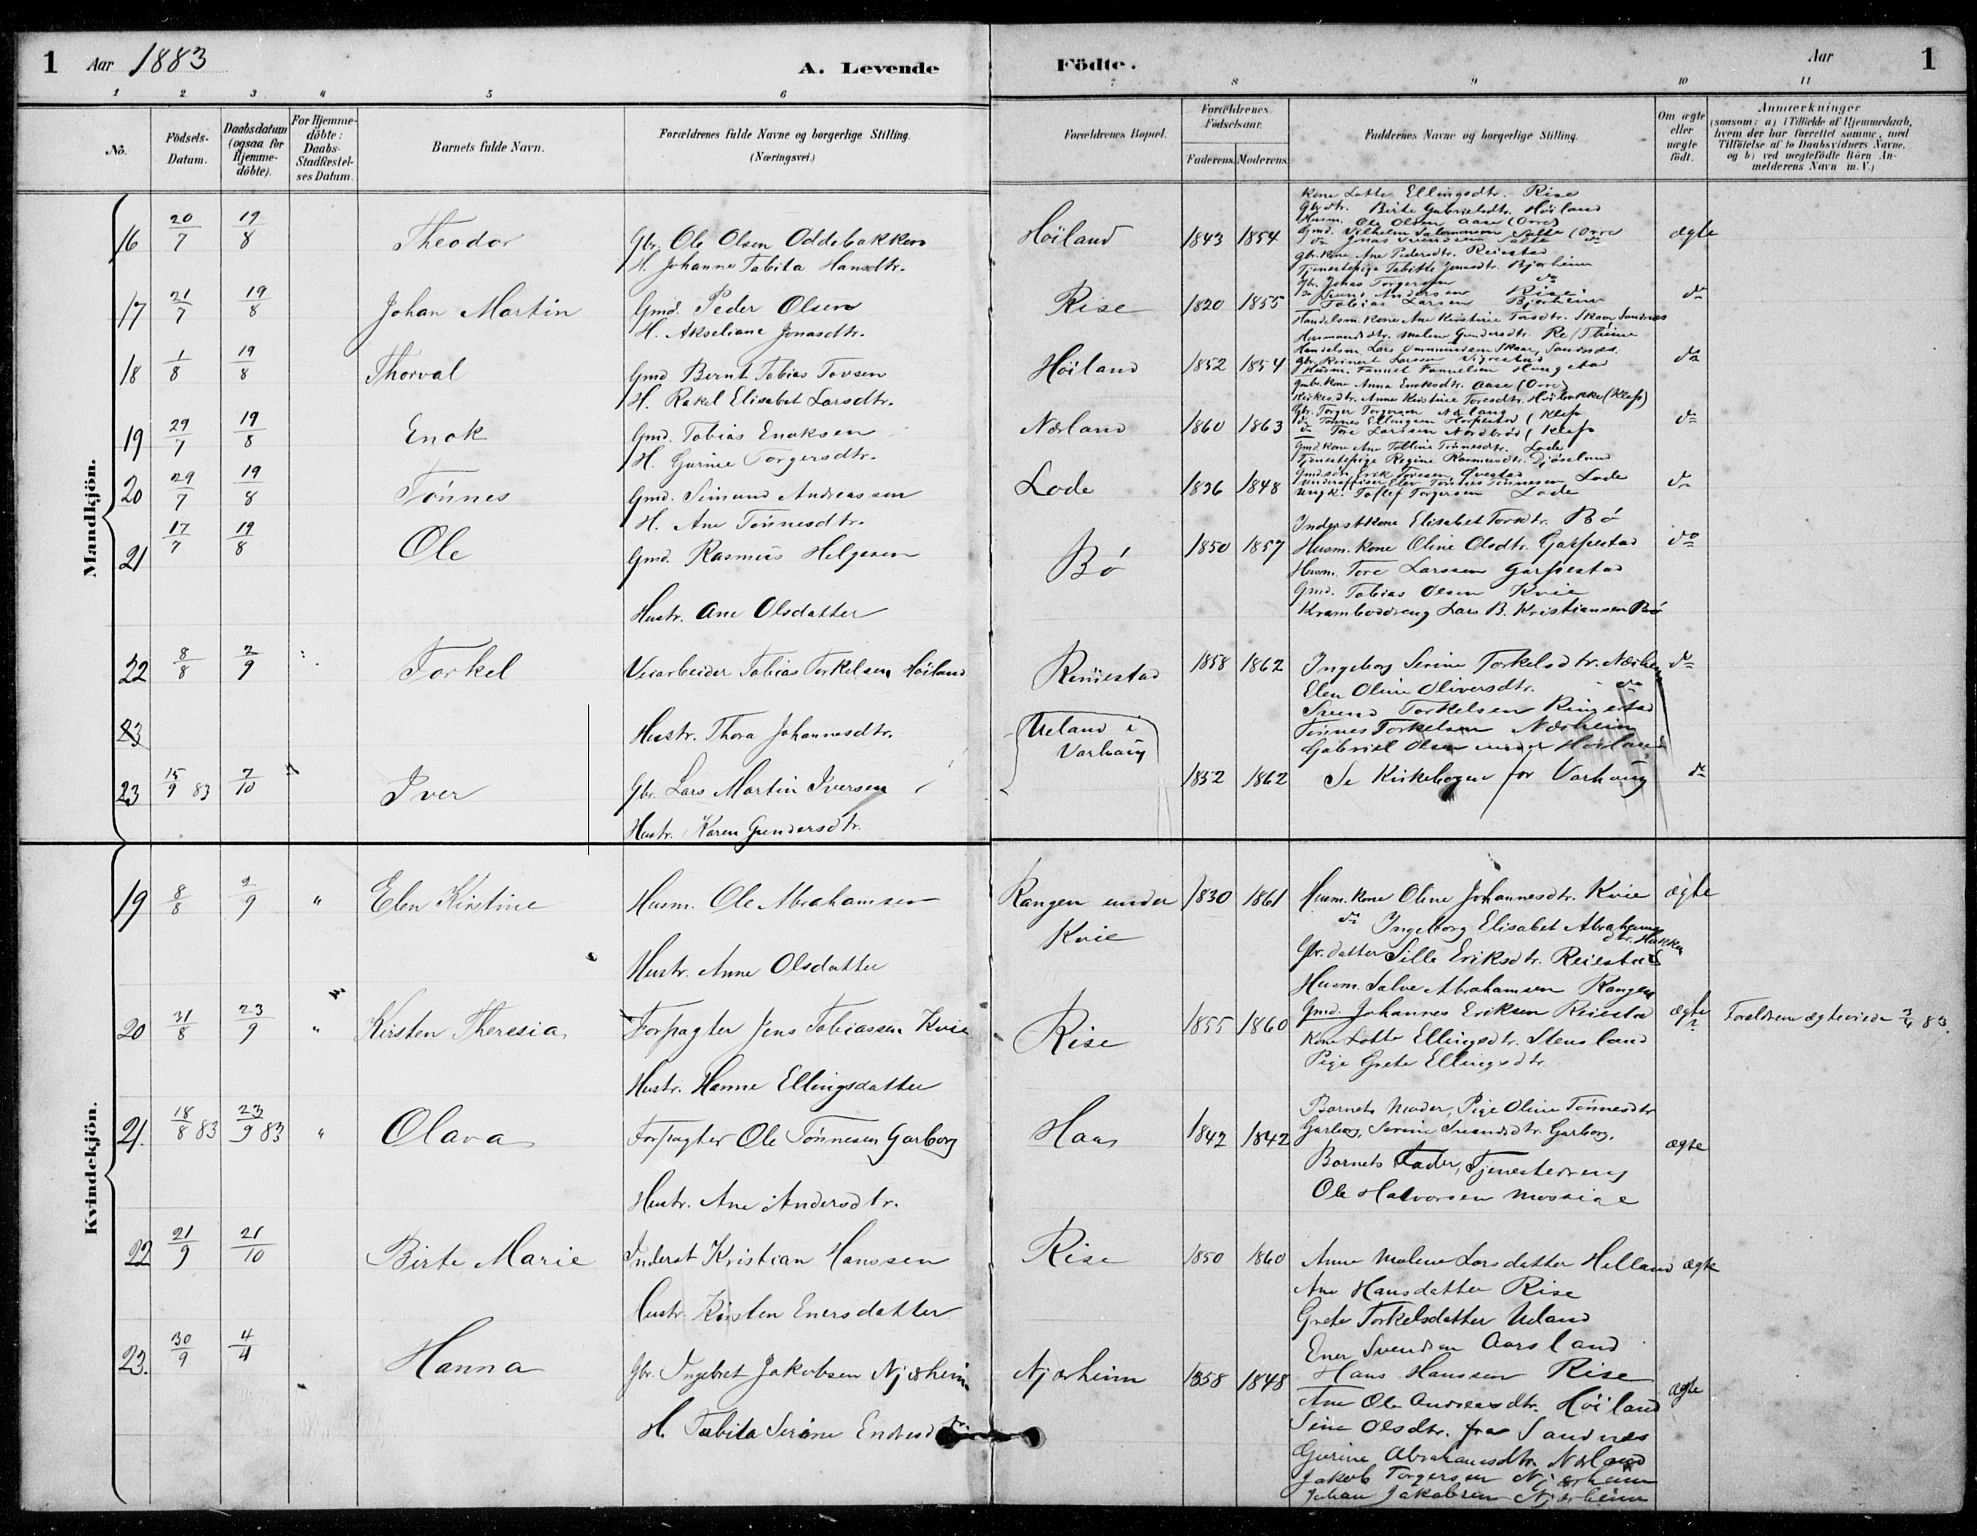 1 Aar 1883 A. Levende Födte. Aar 1
1 2 3 4 5 6 7 8 9 10 11
No.
Födsels-Datum.
Daabsdatum (ogsaa for Hjemme-döbte).
For Hjemme-döbte: Daabs-Stadfæstel-ses Datum.
Barnets fulde Navn.
Forældrenes fulde Navne og borgerlige Stilling. (Næringsvei.)
Forældrenes Bopæl.
Forældrenes Födselsaar.
Faderens. Moderens.
Faddernes Navne og borgerlige Stilling.
Om ægte eller uægte födt.
Anmærkninger
(saasom: a) i Tilfælde af Hjemmedaab, hvem der har forrettet samme, med Tilföielse af to Daabsvidners Navne, og b) ved uægtefödte Börn Anmelderens Navn m. V.)
Mandkjön.
16 20/7 19/8 Theodor Gbr. Ole Olsen Oddebakken Höiland 1843 1854 ægte
H. Johanne Tabita Hansdtr.
Kone Lotte Ellingsdtr. Rise
Gbrdtr. Birte Gabrielsdtr. Höiland
Husm. Ole Olsen Aase (Orre)
Gmd. Vilhelm Salomonsen Salte (Orre
do Jonas Svendsen Salte do
17 21/7 19/8 Johan Martin Gmd. Peder Olsen Rise 1820 1855 do
H. Akseliane Jonasdtr.
Gbr. kone Ane Pedersdtr. Reiestad
Tjenestepige Tabitte Jonasdtr. Bjorheim
Gbr. Jonas Torgersen do
do Svend Andersen Rise
Tobias Larsen Bjorheim
18 1/8 19/8 Thorval Gmd Bernt Tobias Tovsen Höiland 1852 1854 do
H. Rakel Elisabet Larsdtr.
Handelsm. Kone Ane Kirstine Torsdtr. Skaar Sandnes
Husmandsdtr. Malene Gundersdtr. Re/Thime
Handelsm. Lars Ommundsen Skaar, Sandnes.
Gbr. Reinert Larssen Vigrestad
19 29/7 19/8 Enok Gmd. Tobias Enoksen Nærland 1860 1863 do
H. Gurine Torgersdtr.
Gmbr. kone Anna Enoksdtr. Aase (Orre)
Gbr. Torger Torgersen Nærland
do Tönnes Ellingsen (Klep
do Tore Larssen Nordbröd (Klep
20 29/7 19/8 Tönnes Gmd. Simund Andreassen Lode 1836 1848 do
H. Ane Tönnesdtr.
Gmd kone Ane Tobline Tönnesdtr. Lode
Tjenestepige Regine Rasmusdtr. Djösland
Ungk. Tollef Torgersen Lode
21 17/7 19/8 Ole Gmd. Rasmus Helgesen Bö 1850 1857 do
Hustr. Ane Olsdatter
Inderstkone Elisabet Torsdtr. Bö
Husm. kone Oline Olsdtr. Garpestad
Husm. Tore Larssen Garpestad
Gmd. Tobias Olsen Kvie
Kramboddreng Lars B. Kristiansen Bö
22 8/8 2/9 Torkel Veiarbeider Tobias Torkelsen Höiland Reiiestad 1858 1862 do
23 Hustr. Thora Johannesdtr.
Ingeborg Serine Torkelsdtr. Nærheim
Elen Oline Oliversdtr. do
Svend Torkelsen Ringestad
Tönnes Torkelsen Nærheim
Gabriel Olsen under Höiland
23 15/9 83 7/10 Iver Gbr. Lars Martin Iversen Ueland i Varhaug 1852 1862 Se Kirkebogen for Varhaug do
Hustr. Karen Gundersdtr.
Kvindekjön.
19 8/8 2/9 " Elen Kirstine Husm. Ole Abrahamsen Rangen under Kvie 1830 1861 ægte
Hustr. Anne Olsdatter
Husm. kone Oline Johannesdtr. Kvie
do Ingeborg Elisabet Abrahamsdtr. Hakken
Gbr. datter Sille Eriksdtr. Reiestad
Husm. Salve Abrahamsen Rangen
Gmd. Johannes Eriksen Reiestad
20 31/8 23/9 " Kirsten Theresia Forpagter Jens Tobiassen Kvie Rise 1855 1860 ægte Forældrene ægteviede 3/4 83.
Hustr. Hanne Ellingsdatter
Kone Lotte Ellingsdtr. Stensland
Pige Grete Ellingsdtr.
21. 18/8 83 23/9 83 " Olava Forpagter Ole Tönnesen Garborg Haa 1842 1842 ægte
Hustr. Ane Andersdtr.
Barnets Moder, Pige Oline Tönnesdtr
Garborg, Serine Svendsdtr. Garborg,
Barnets Fader, Tjenestedreng
Ole Halvorsen Mossige
22 21/9 21/10 Birte Marie Inderst Kristian Hanssen Rise 1850 1860 ægte
Hustr. Kirsten Enersdatter
Anne Malene Larsdatter Helland
Ane Hansdatter Rise
Grete Torkelsdatter Ueland
Ener Svendsen Aarsland
Hans Hanssen Rise
23. 30/9 4/4 Hanna Gbr. Ingebret Jakobsen Njærheim Njærheim 1858 1848 ægte
H. Tabita Serine
Ane Ole Andreasdtr. Höiland
Sine Olsdtr. fra Sandnes
Gurine Abrahamsdtr. Nærland
Jakob Torgersen Njærheim
Johan Jakobsen Njærheim